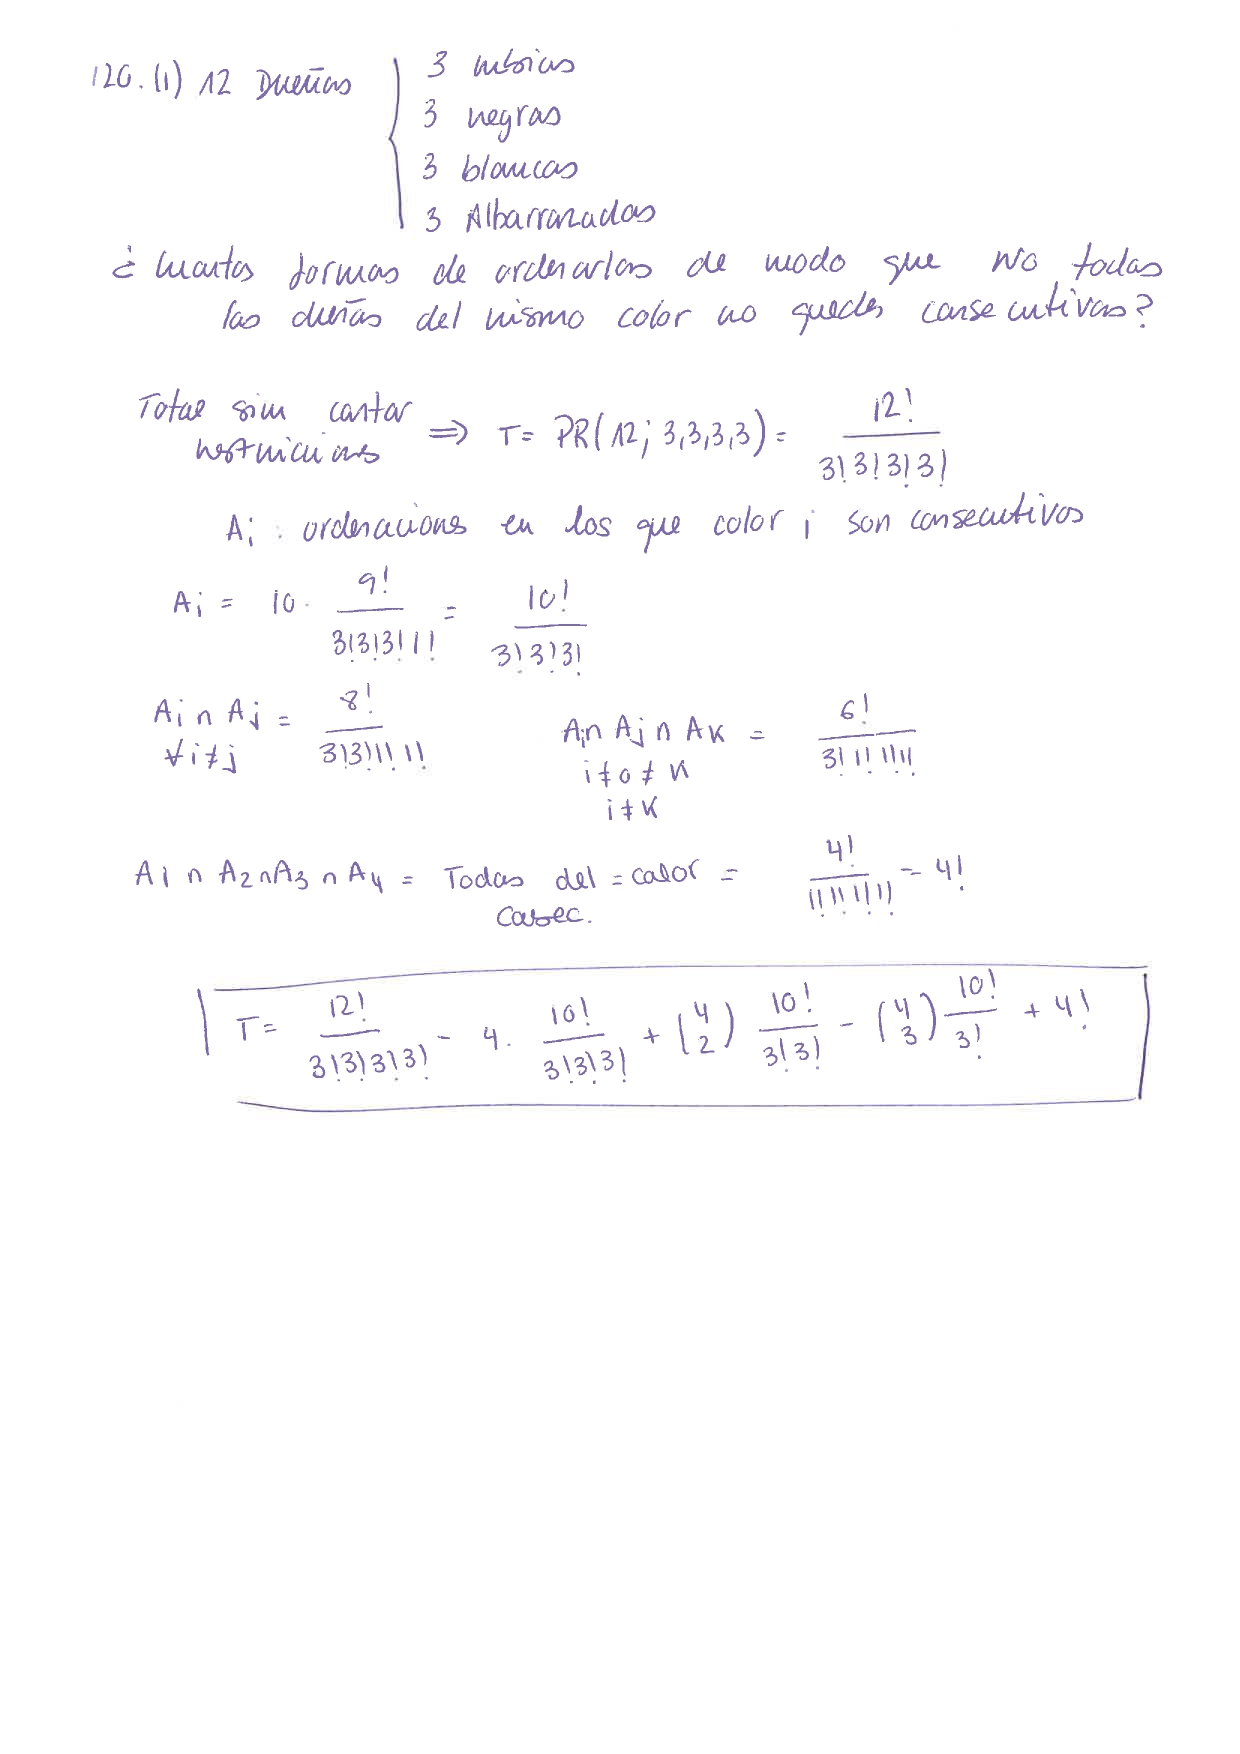 120. (1) 12 Dueñas { 3 rubias
3 negras
3 blancas
3 Albarranadas
¿ Cuantas formas de ordenarlas de modo que No todas
las dueñas del mismo color no queden consecutivas?
Total sin contar restricciones ⇒ T = PR(12; 3,3,3,3) = 12! / 3!3!3!3!
Ai : ordenaciones en los que color i son consecutivos
Ai = 10 · 9! / 3!3!3!1! = 10! / 3!3!3!
Ai ∩ Aj = 8! / 3!3!1!1!
∀ i ≠ j
Ai ∩ Aj ∩ Ak = 6! / 3!1!1!1!
i ≠ j ≠ k
i ≠ k
A1 ∩ A2 ∩ A3 ∩ A4 = Todas del = color = 4! / 1!1!1!1! = 4!
Consec.
T = 12! / 3!3!3!3! - 4 · 10! / 3!3!3! + (4 2) 10! / 3!3! - (4 3) 10! / 3! + 4!